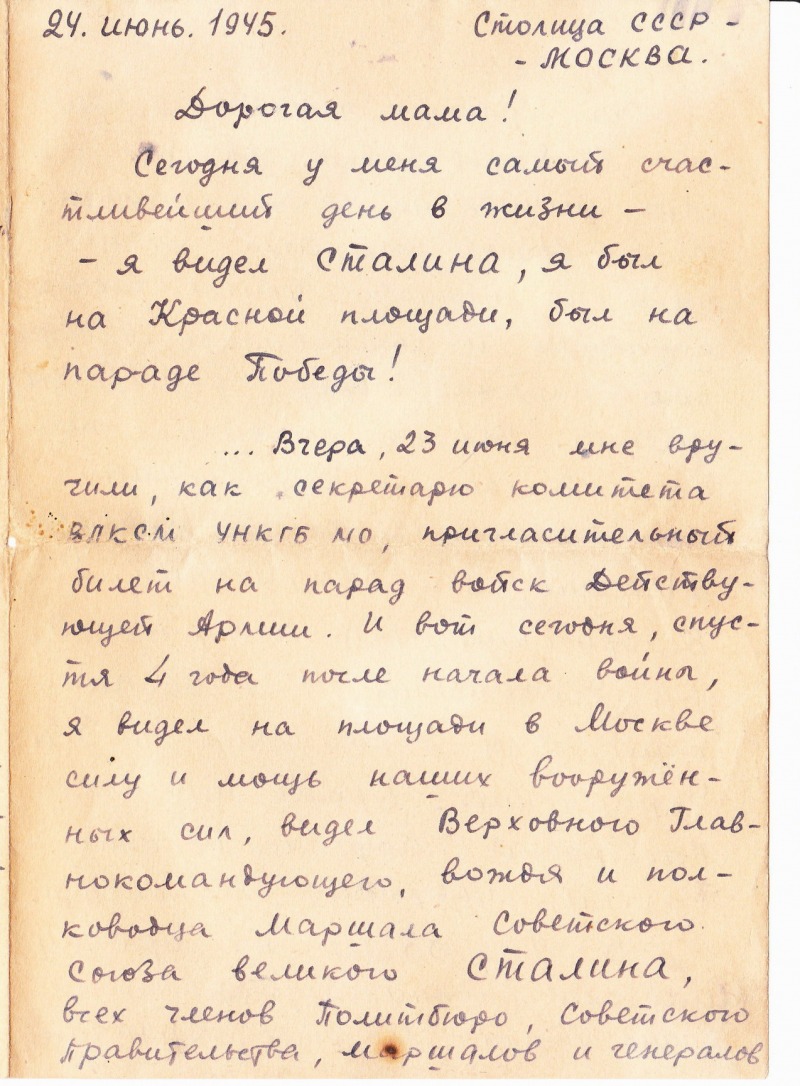 24. июнь. 1945.
Столица СССР -
- МОСКВА.
Дорогая мама!
Сегодня у меня самый счас-
тливейший день в жизни -
- я видел СТАЛИНА, я был
на Красной площади, был на
параде Победы!
... Вчера, 23 июня мне вру-
чили, как секретарю комитета
ВЛКСМ УНКГБ МО, пригласительный
билет на парад войск Действу-
ющей Армии. И вот сегодня, спус-
тя 4 года после начала войны,
я видел на площади в Москве
силу и мощь наших вооружён-
ных сил, видел Верховного Глав-
нокомандующего, вождя и пол-
ководца Маршала Советского
Союза великого СТАЛИНА,
всех членов Политбюро, Советского
Правительства, маршалов и генералов